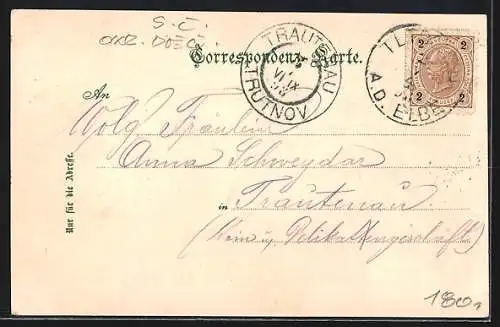 S. Č.
OKR. DOEČE
Correspondenz-Karte.
TRAUTENAU
TRUTNOV
A.D. ELBE
2 2
2 2
An
Wolg. Fräulein
Anna Schweydar
in Trautenau.
(Wein u. Delikatessengeschäft)
Nur für die Adresse.
180,-